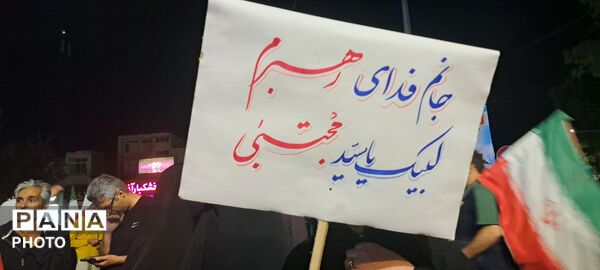 جانم فدای رهبرم
لبیک یا سیّد مجتبیٰ
خشکبار آذ
PANA
PHOTO